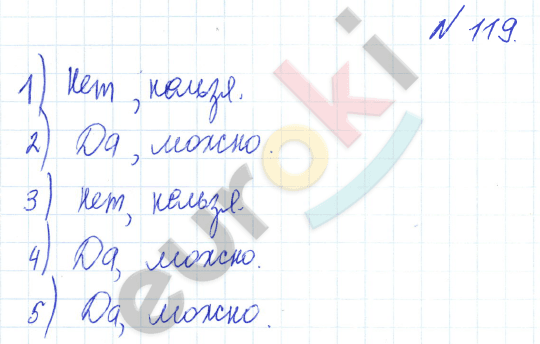 N 119.
1) Нет, нельзя.
2) Да, можно.
3) Нет, нельзя.
4) Да, можно.
5) Да, можно.
euroki